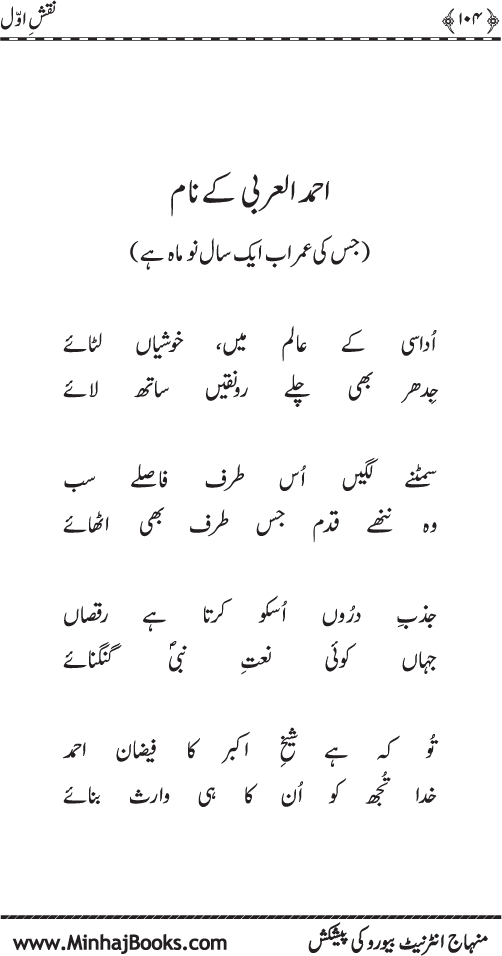 ﴿۱۰۴﴾ نقشِ اوّل
احمد العربی کے نام
(جس کی عمر اب ایک سال نو ماہ ہے)
اُداسی کے عالم میں، خوشیاں لٹائے
جِدھر بھی چلے رونقیں ساتھ لائے
سمٹنے لگیں اُس طرف فاصلے سب
وہ ننھے قدم جس طرف بھی اٹھائے
جذبِ درُوں اُسکو کرتا ہے رقصاں
جہاں کوئی نعتِ نبیؐ گنگنائے
تُو کہ ہے شیخِ اکبر کا فیضان احمد
خدا تُجھ کو اُن کا ہی وارث بنائے
منہاج انٹرنیٹ بیورو کی پیشکش www.MinhajBooks.com